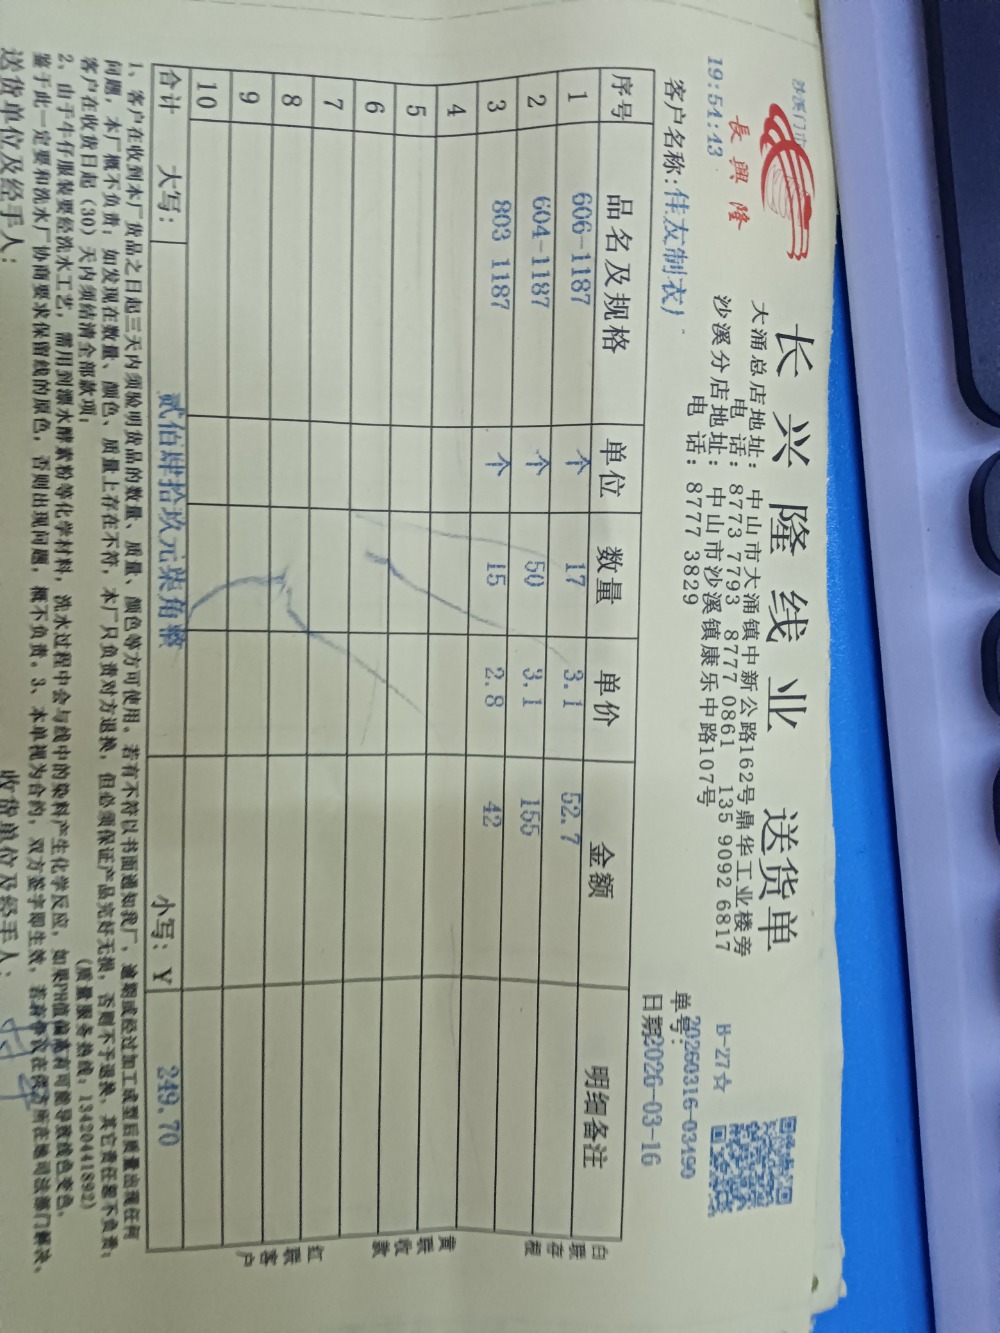 沙溪门市
長興隆
19:54:43
长兴隆线业 送货单
大涌总店地址：中山市大涌镇中新公路162号鼎华工业楼旁
电 话：8773 7793 8777 0861 135 9092 6817
沙溪分店地址：中山市沙溪镇康乐中路107号
电 话：8777 3829
H-27☆
单号：20260316-03490
客户名称：佳友制衣)
日期2026-03-16
序号 品名及规格 单位 数量 单价 金额 明细备注
1 606-1187 个 17 3.1 52.7
2 604-1187 个 50 3.1 155
3 803 1187 个 15 2.8 42
4
5
6
7
8
9
10
合计 大写： 贰佰肆拾玖元柒角整 小写：￥ 249.70
白联存根
黄联收款
红联客户
1、客户在收到本厂货品之日起三天内须验明货品的数量、质量、颜色等方可使用。若有不符以书面通知我厂，逾期或经过加工成型后质量出现任何
问题，本厂概不负责；如发现在数量、颜色、质量上存在不符，本厂只负责对方退换，但必须保证产品完好无损，否则不予退换，其它责任恕不负责；
客户在收货日起（30）天内须结清全部款项； （质量服务热线：13420441892）
2、由于牛仔服装要经洗水工艺，需用到漂水酵素粉等化学材料，洗水过程中会与线中的染料产生化学反应，如果PH值偏高有可能导致线色变色。
鉴于此一定要和洗水厂协商要求保留线的原色，否则出现问题，概不负责。3、本单视为合约，双方签字即生效，若有争议在供方所在地司法部门解决。
送货单位及经手人： 收货单位及经手人：